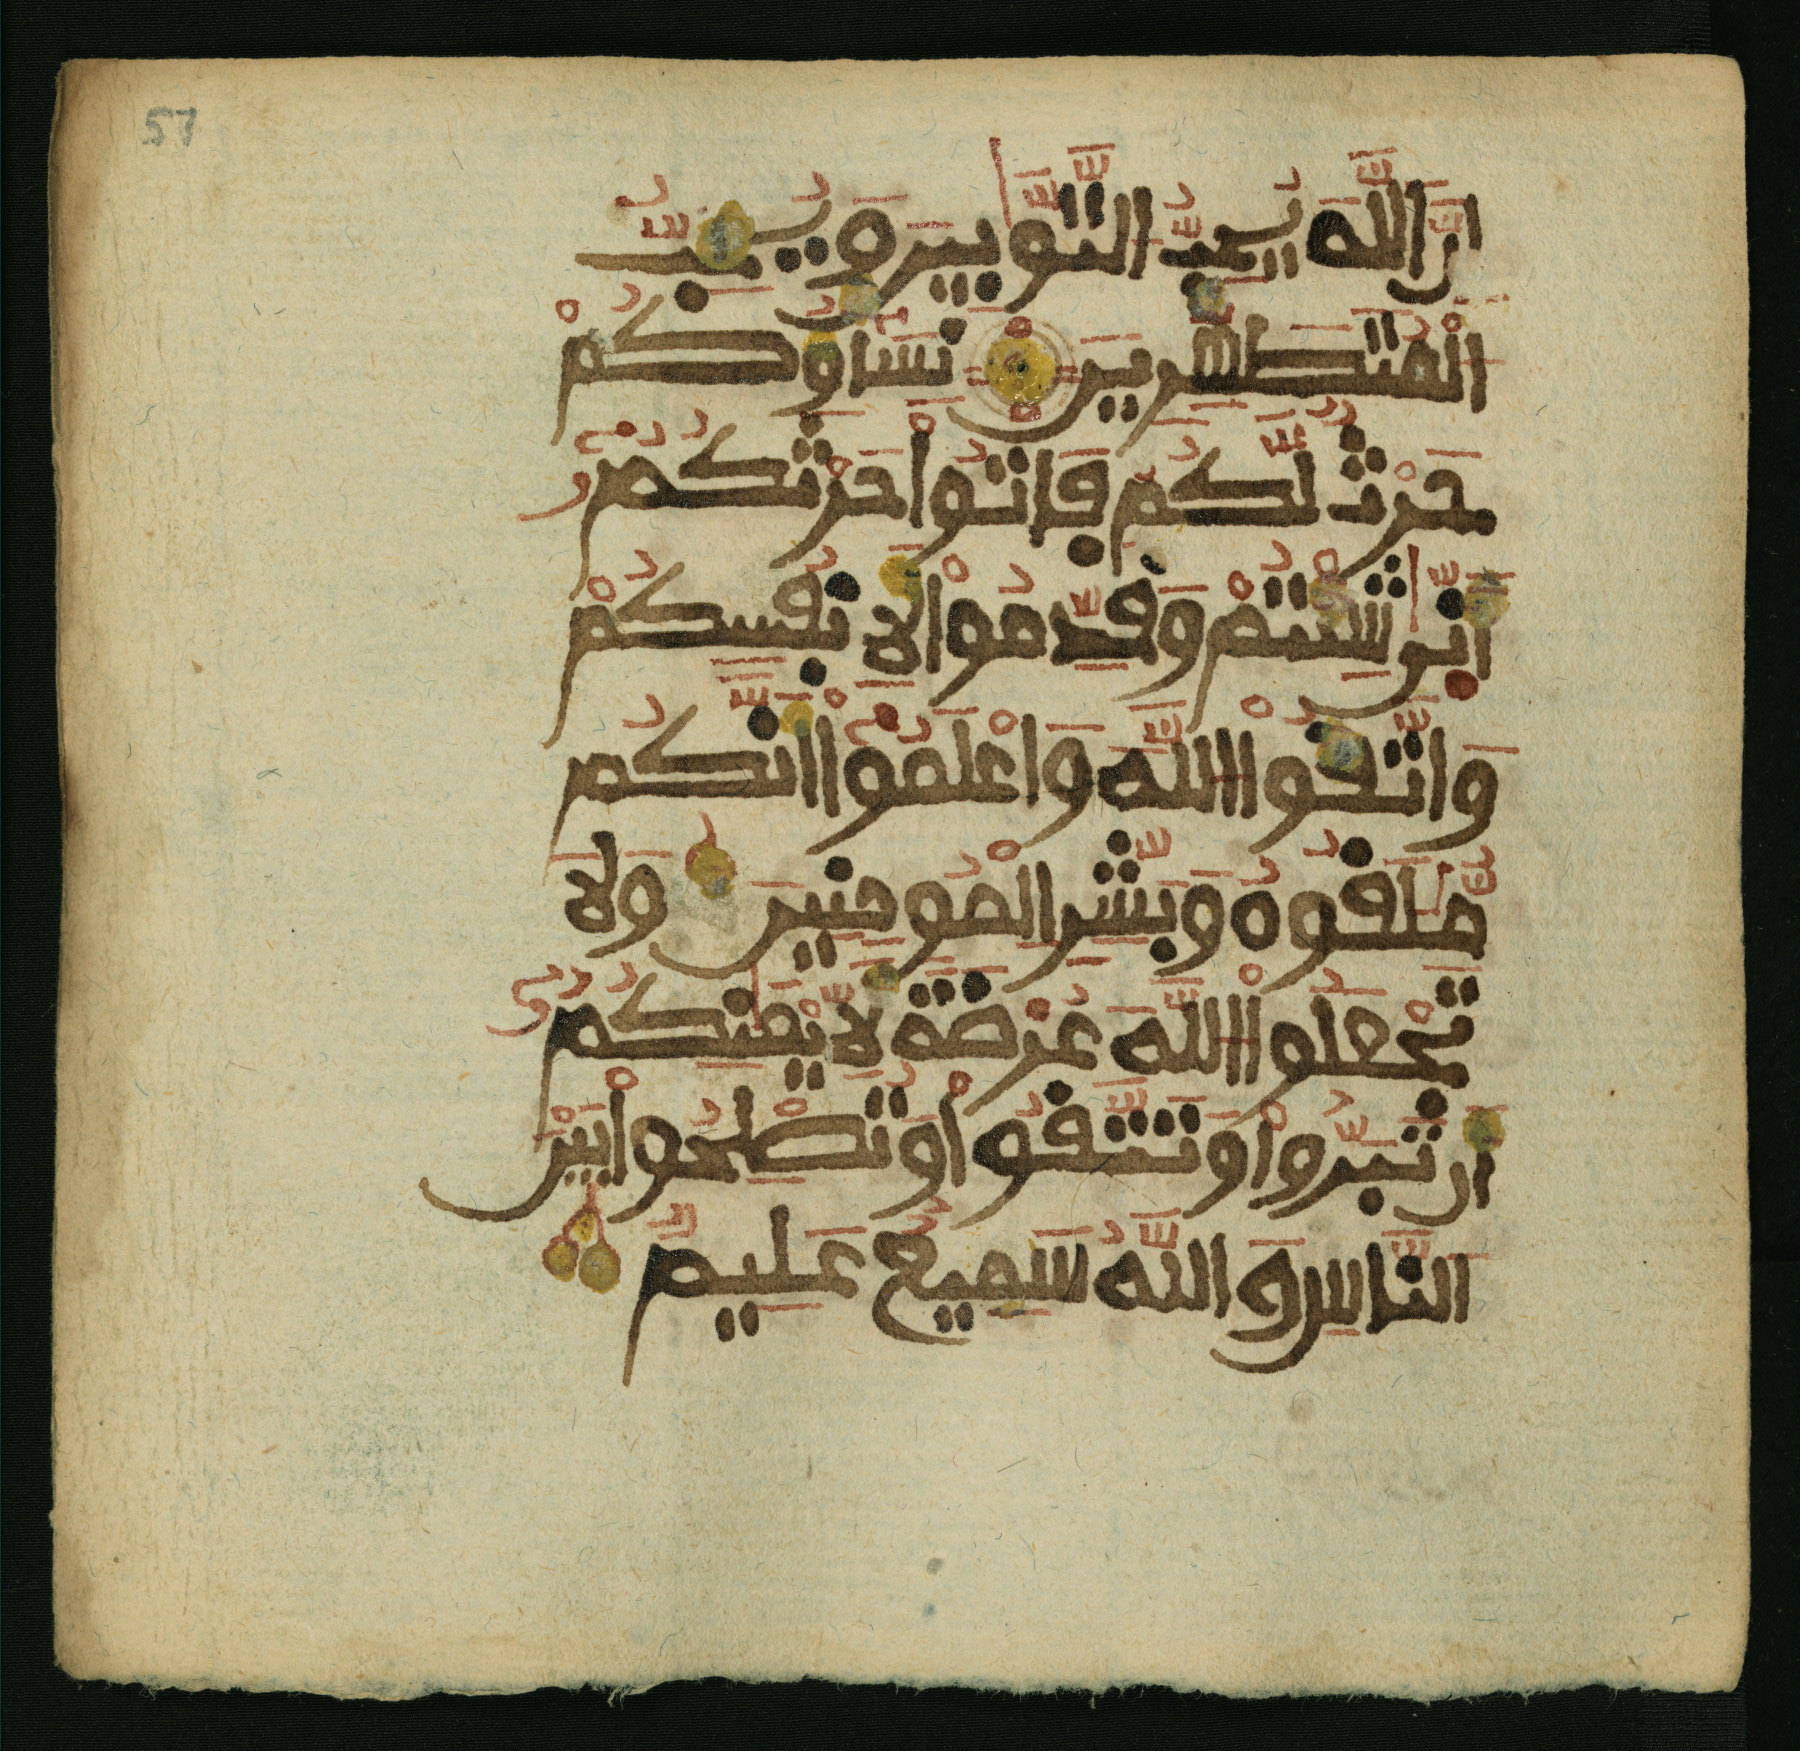 57
ان الله يحب التوبين و يحب
المتطهرين نساؤكم
حرث لكم فاتوا حرثكم
انى شئتم وقدموا لانفسكم
واتقوا الله واعلموا انكم
ملقوه وبشر المومنين ولا
تجعلوا الله عرضة لايمنكم
ان تبروا وتتقوا وتصلحوا بين
الناس والله سميع عليم